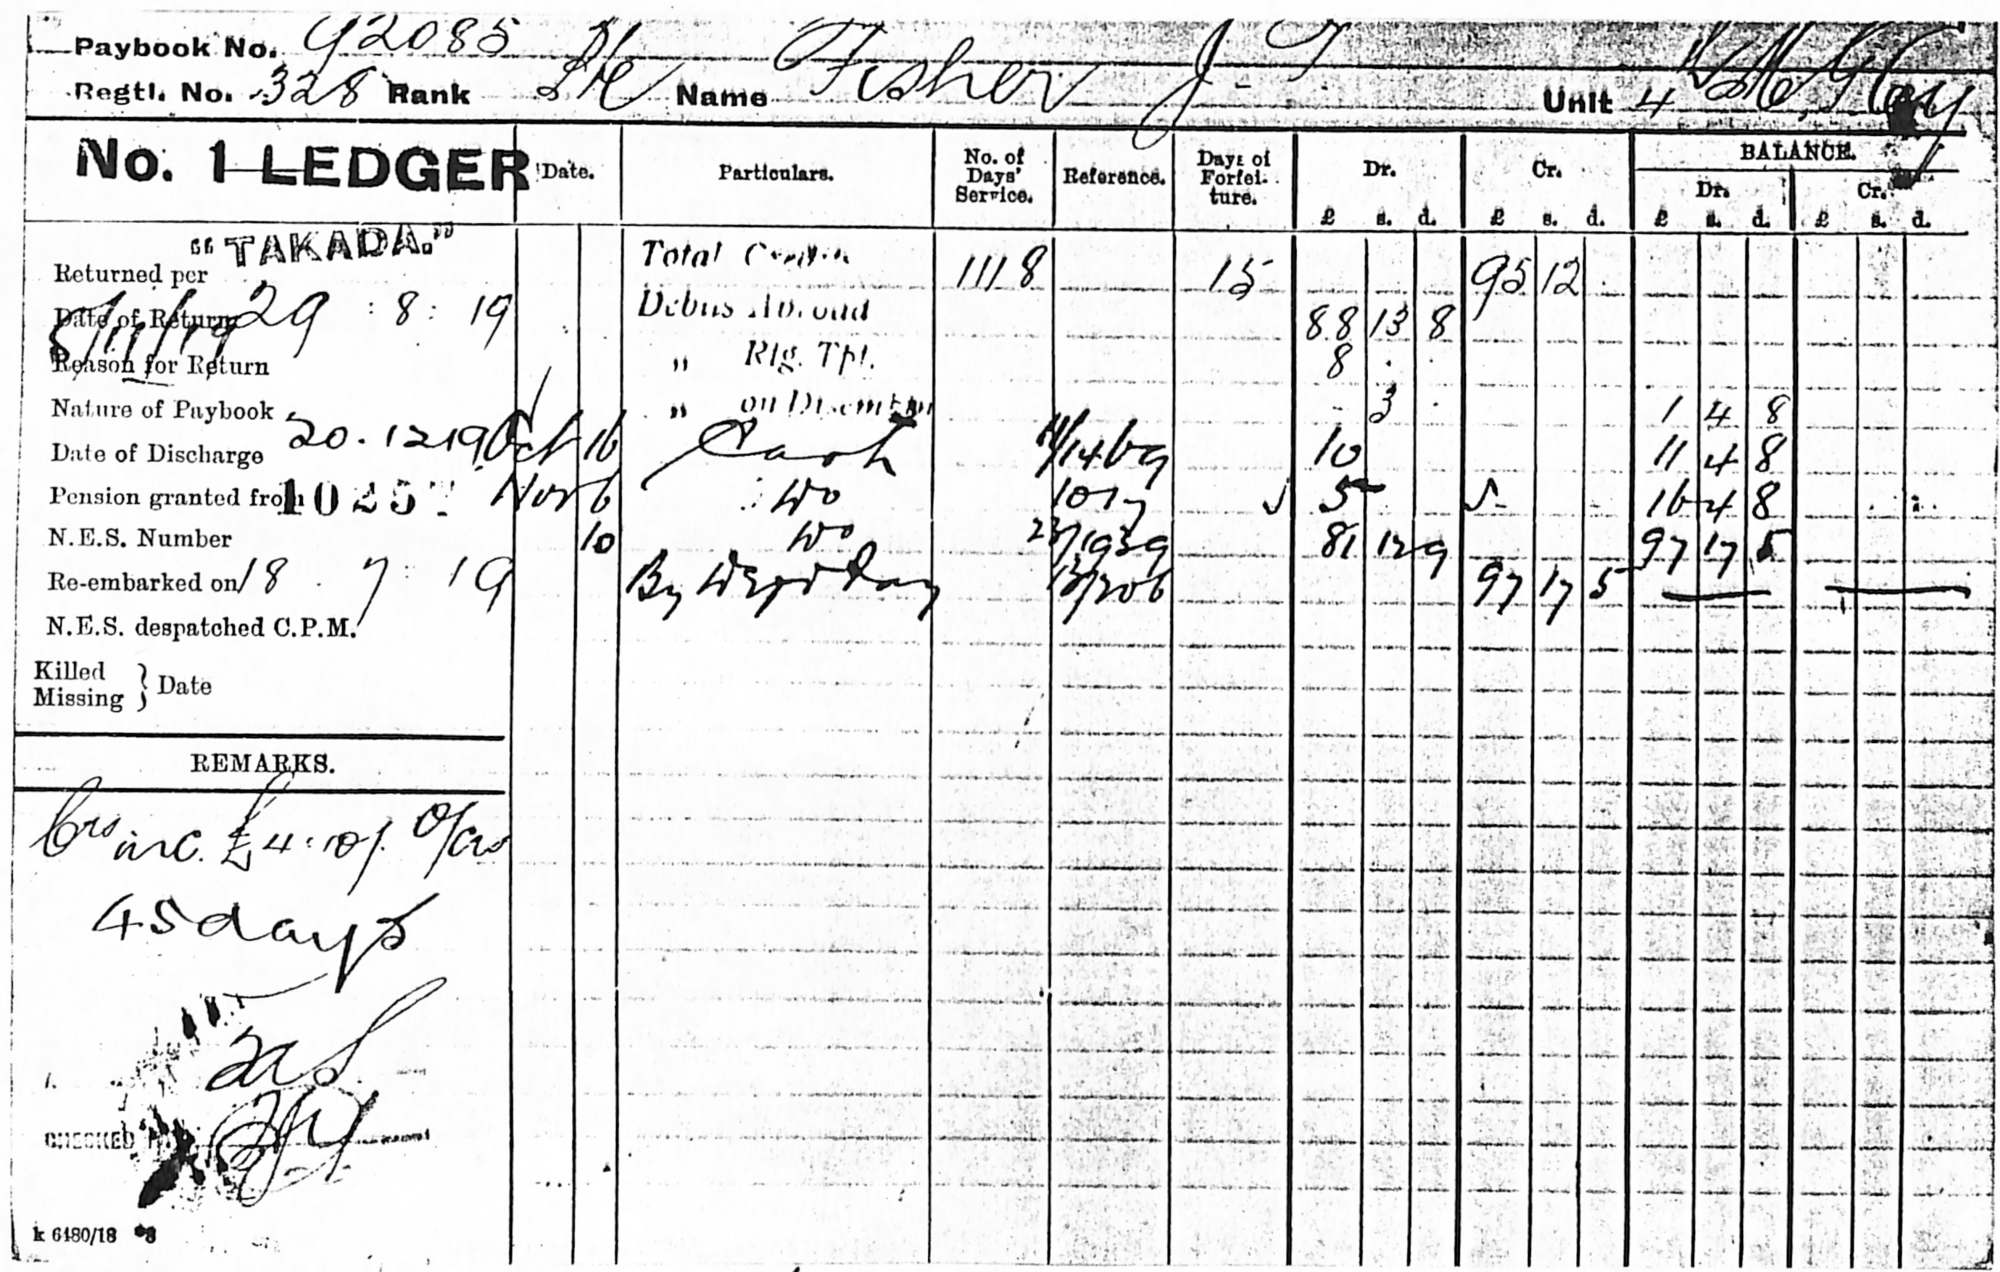 Paybook No. 92085
Regtl. No. 328 Rank Name Fisher J. T Unit 4
No. 1 LEDGER Date. Particulars. No. of Days' Service. Reference. Days of Forfeiture. Dr. Cr. BALANCE.
Dr. Cr.
£ s. d. £ s. d. £ s. d. £ s. d.
Returned per "TAKADA." Total 1118 15 95 12
Date of Return 29 : 8 : 19 Debits Abroad 88 13 8
5/11/19
Reason for Return " Rlg. Tpt. 8
Nature of Paybook " on 3 1 4 8
Date of Discharge 20.12 19 Oct 16 Cash 10 11 4 8
Pension granted from 1025 Nov 6 Do 5 5 16 4 8
N.E.S. Number 10 Do 81 12 9 97 17 5
Re-embarked on 18 . 7 : 19 By 97 17 5
N.E.S. despatched C.P.M.
Killed
Missing } Date
REMARKS.
Crs inc. £4.10/.
45 days
CHECKED
k 6480/18